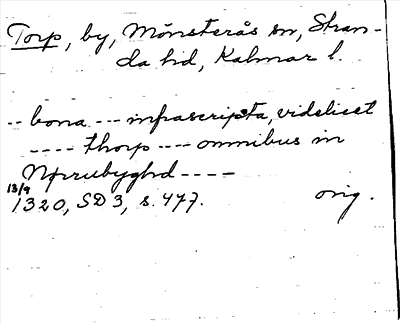 Torp, by, Mönsterås sn, Stran-
da hd, Kalmar l.
-- bona --- infrascripta, videlicet
---- thorp ---- omnibus in
Nørrubyghd ----
13/9
1320, SD 3, s. 477. orig.